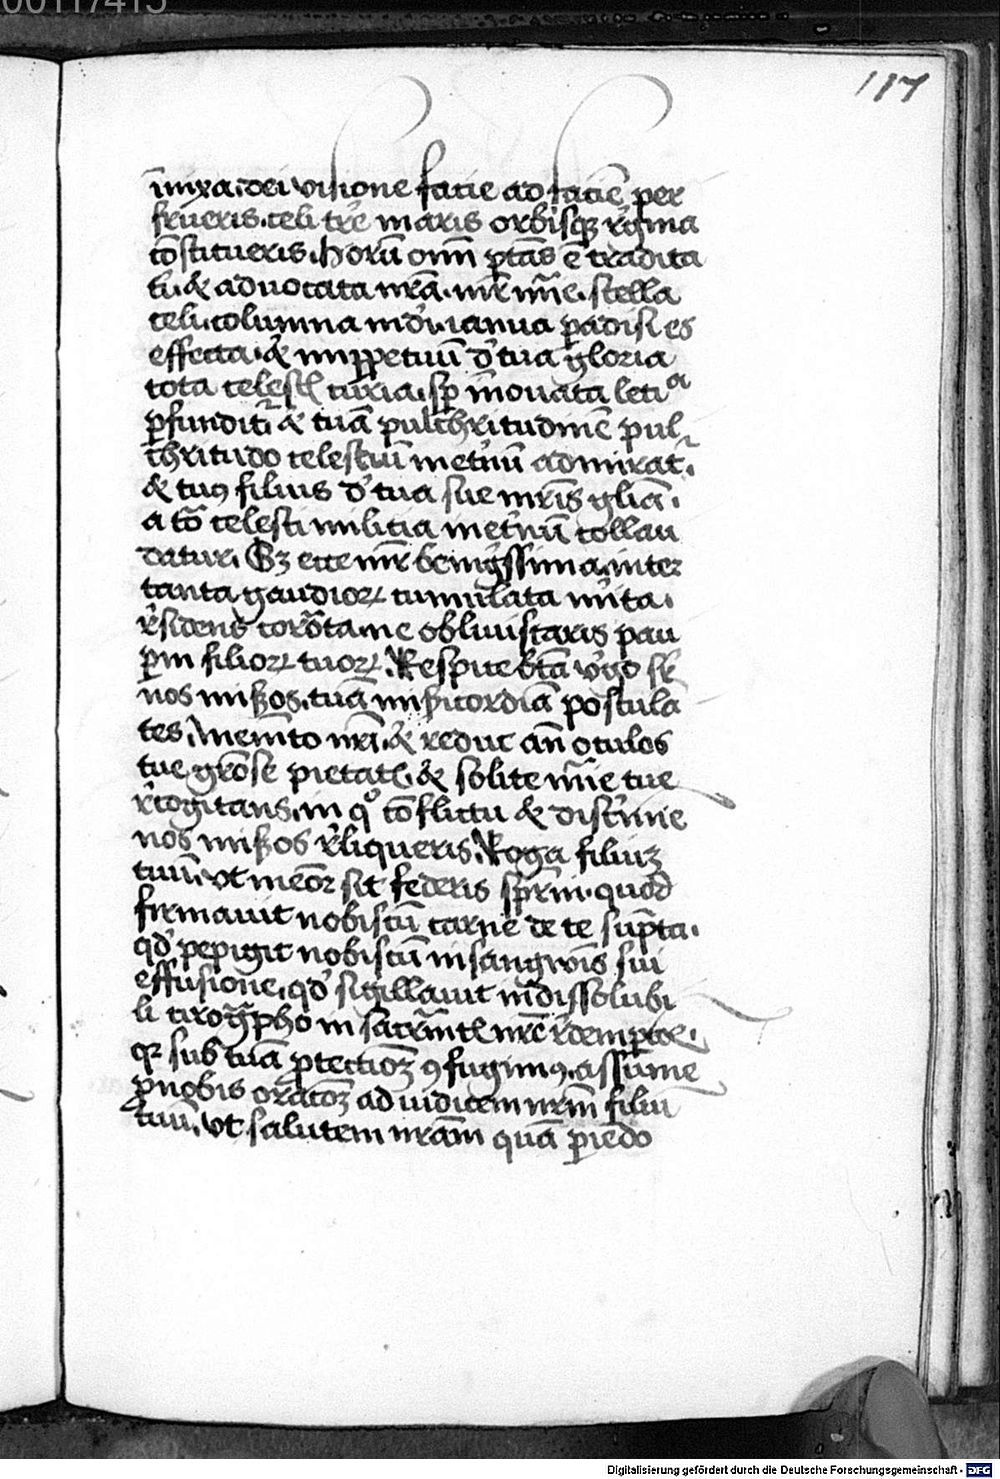 00117415
117
īnixa. dei visione facie ad faciē per
frueris. celi tr̄e maris orbisqꝫ r̄gina
cōstitueris. horū om̄ ptās ē tradita
ti. & aduocata nr̄a. mr̄ mīe. stella
celi. columna mdi. ianua padisi es
effecta. & inppetuū d' tua gloria
tota celestꝭ curia. sp īnouata leti
pfundit᷑ & tuā pulchritudinē pul
chritudo celestiū met'nū admirat᷑.
& tuꝰ filius d' tua sue mr̄is gliā.
a tō celesti militia met'nū collau
datur. Sꝫ ecce mr̄ benigssima. inter
tanta gaudioꝝ cumulata mīta.
r̄sidens obliuiscaris pau
pm filioꝝ tuoꝝ. Respice btā v'go sr̄
nos mis̄os. tuā mis̄icordiā postulā
tes. Memēto nr̄i. & reduc an̄ oculos
tue grōse pietatꝭ. & solite mīe tue
r̄cogitans. in q° cōflictu & discrīmie
nos mis̄os r̄liqueris. Roga filiuꝫ
tuū. vt meōr sit federis sp̄rni. quod
firmauit nobiscū carne de te sūpta.
qd' pepigit nobiscū in sangwīs sui
effusione. qd' sigillauit indissolubi
li cirogr̄pho in sacrm̄tꝭ nr̄e r̄demptōe.
qꝛ sub tuā ptectiōꝫ ꝯfugimꝰ. assume
pnobis oratōꝫ ad iudicem nr̄m filiū
tuū. vt salutem nr̄am quā piedo
Digitalisierung gefördert durch die Deutsche Forschungsgemeinschaft - DFG